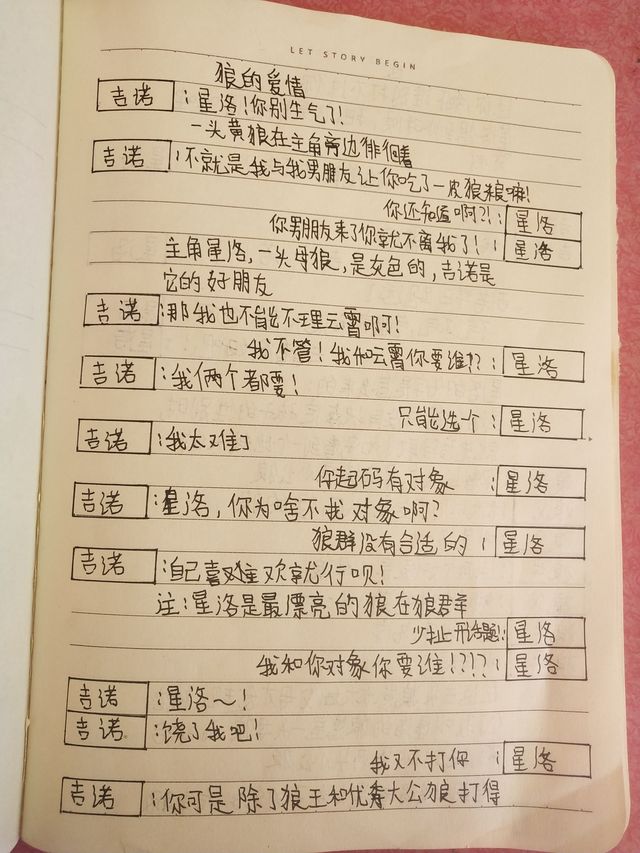 LET STORY BEGIN
狼的爱情
吉诺:星洛!你别生气了!
一头黄狼在主角旁边徘徊着
吉诺:不就是我与我男朋友让你吃了一皮狼粮嘛!
你还知道啊?!:星洛
你男朋友来了你就不离我了!:星洛
主角星洛,一头母狼,是灰色的,吉诺是
它的好朋友
吉诺:那我也不能不理云霄啊!
我不管!我和云霄你要谁!?:星洛
吉诺:我俩个都要!
只能选个:星洛
吉诺:我太难了
你起码有对象:星洛
吉诺:星洛,你为啥不找对象啊?
狼群没有合适的:星洛
吉诺:自己喜欢就行呗!
注:星洛是最漂亮的狼在狼群
少扯开话题!:星洛
我和你对象你要谁!???:星洛
吉诺:星洛~!
吉诺:饶了我吧!
我又不打你:星洛
吉诺:你可是除了狼王和优秀大公狼打得